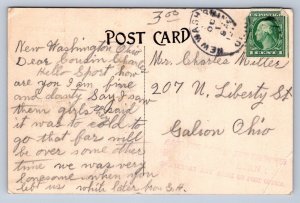 3.00
POST CARD
New Washington Ohio
Dear Cousin
Hello Sport how
are you I am fine
and dandy Say I saw
them girls said
it was to cold to
go that far will
be over some other
time we was very
lonesome when you
let us write later from G.H.
Mr. Charles Miller
207 N. Liberty St
Galion Ohio